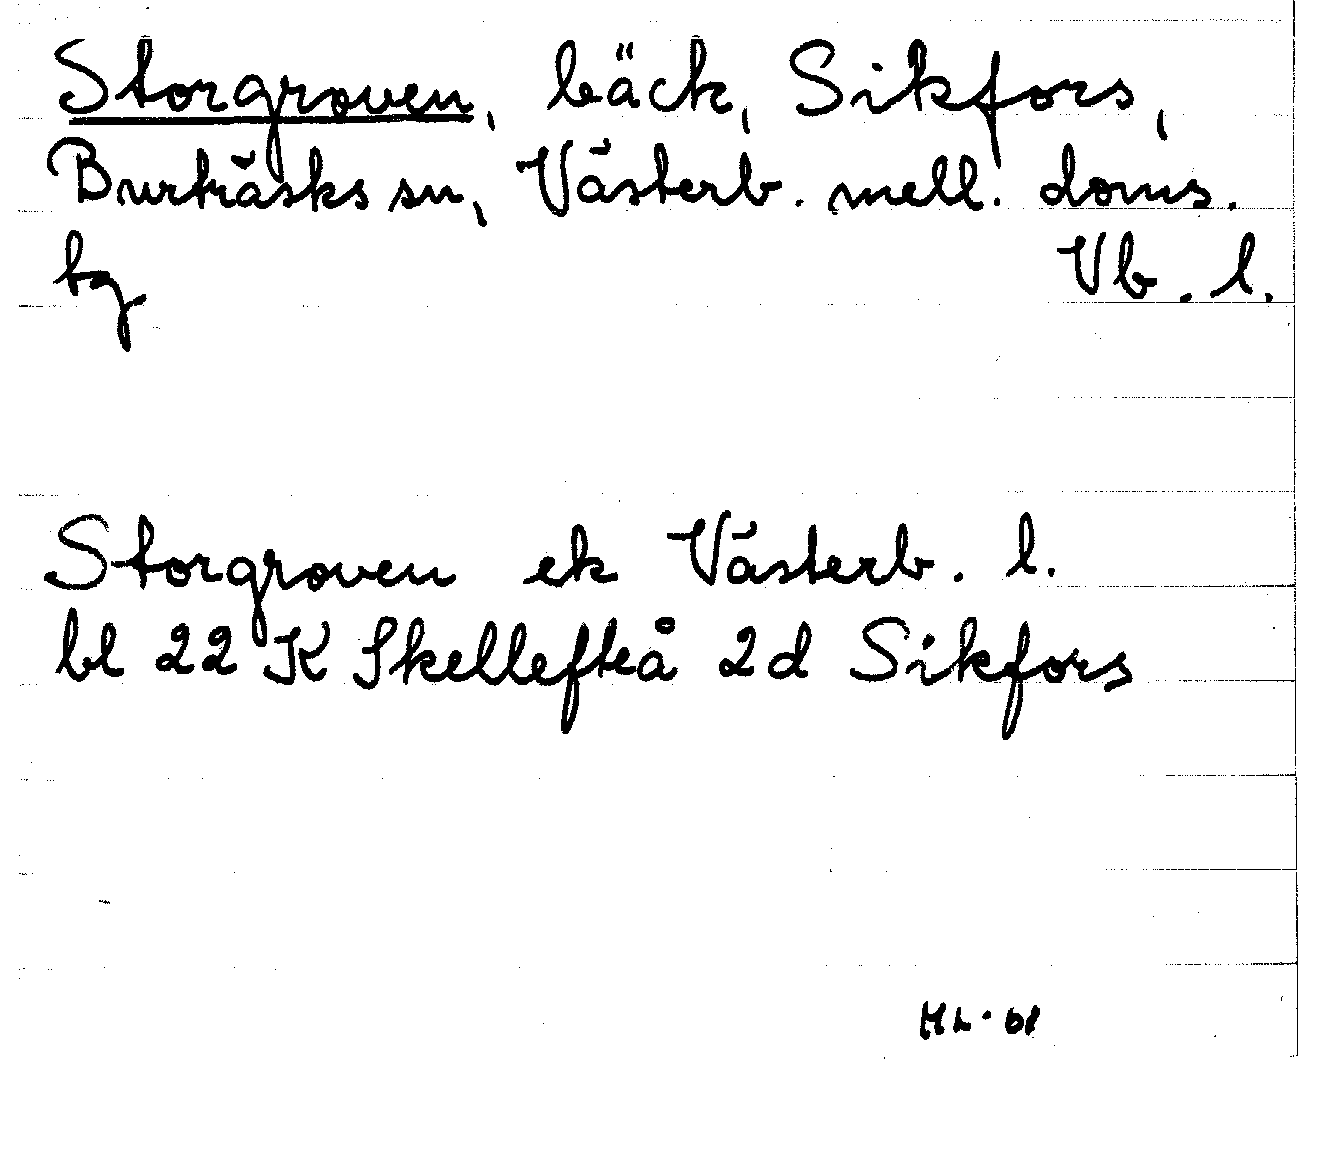 Storgroven, bäck, Sikfors,
Burträsks sn, Västerb. mell. doms.
tg Vb. l.
Storgroven ek Västerb. l.
bl 22 K Skellefteå 2d Sikfors